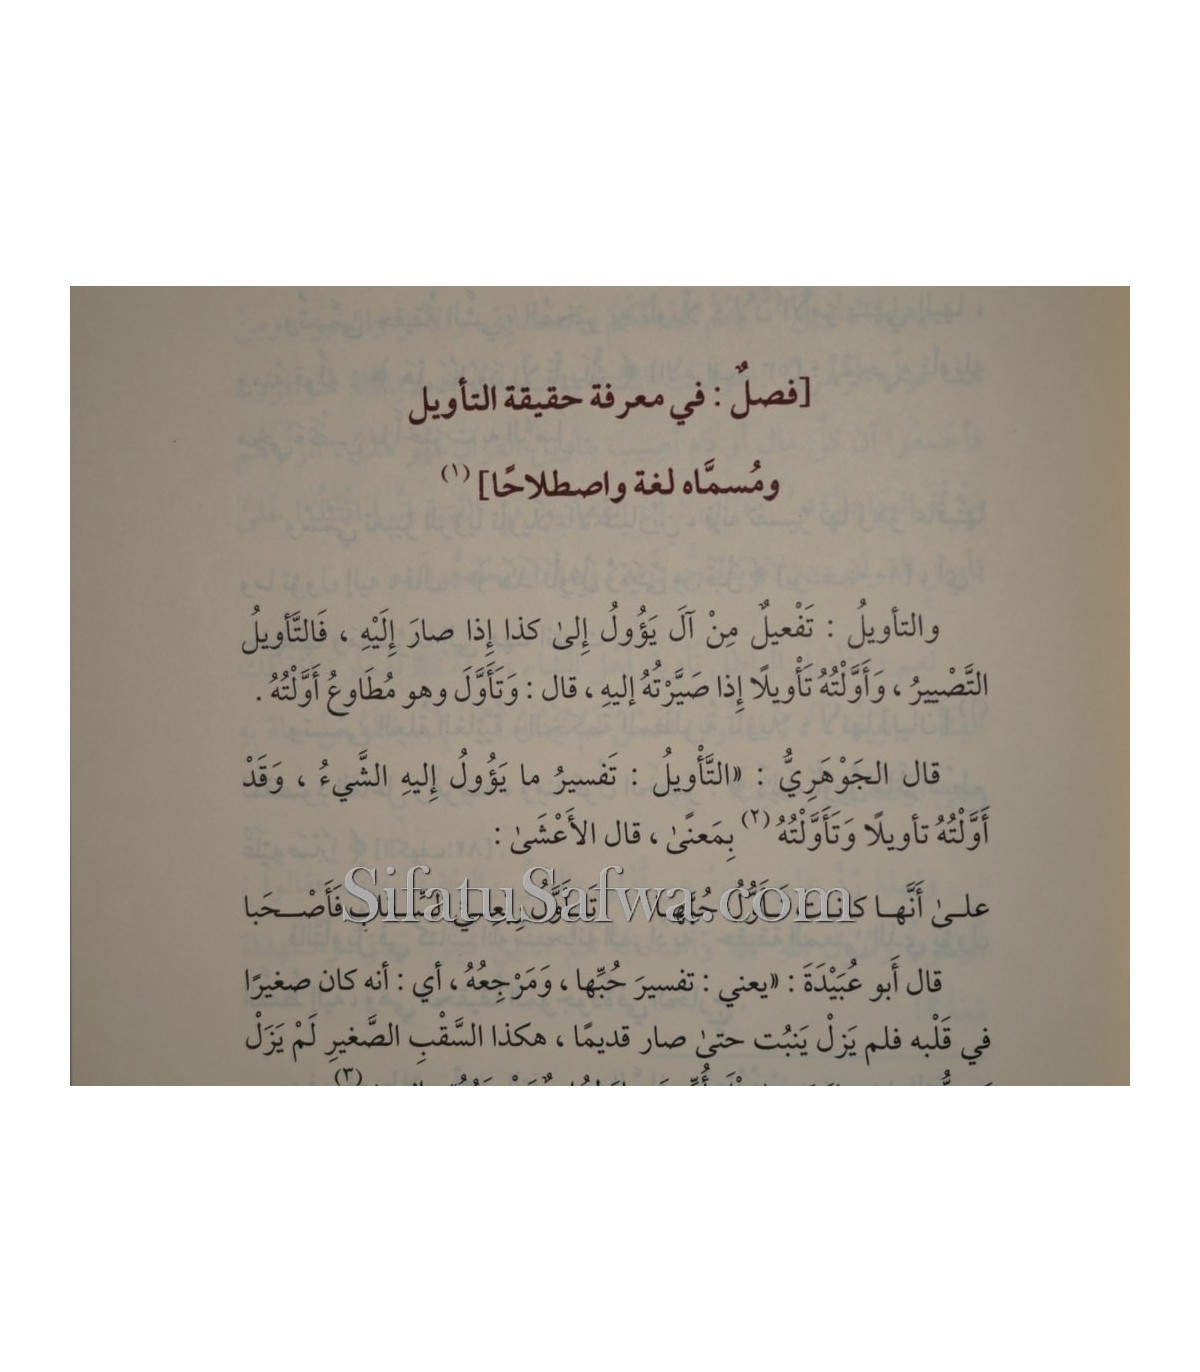 [فصلٌ : في معرفة حقيقة التأويل
ومُسمَّاه لغة واصطلاحًا] (١)
والتأويلُ : تَفْعيلٌ مِنْ آلَ يَؤُولُ إِلىٰ كذا إِذا صارَ إِلَيْهِ ، فَالتَّأويلُ
التَّصْييرُ ، وَأَوَّلْتُهُ تَأْويلًا إِذا صَيَّرْتُهُ إليهِ ، قال : وَتَأَوَّلَ وهو مُطَاوعُ أَوَّلْتُهُ .
قال الجَوْهَرِيُّ : «التَّأْويلُ : تَفسيرُ ما يَؤُولُ إِليهِ الشَّيءُ ، وَقَدْ
أَوَّلْتُهُ تأويلًا وَتَأَوَّلْتُهُ (٢) بِمَعنًىٰ ، قال الأَعْشَىٰ :
علىٰ أَنَّها كانت تَأَوُّلُ حُبِّهَا تَأَوُّلُ رِبْعِيِّ السِّقَابِ فَأَصْحَبا
SifatuSafwa.com
قال أَبو عُبَيْدَةَ : «يعني : تفسيرَ حُبِّها ، وَمَرْجِعُهُ ، أي : أنه كان صغيرًا
في قَلْبه فلم يَزلْ يَنبُت حتىٰ صار قديمًا ، هكذا السَّقْبِ الصَّغيرِ لَمْ يَزَلْ
(٣)